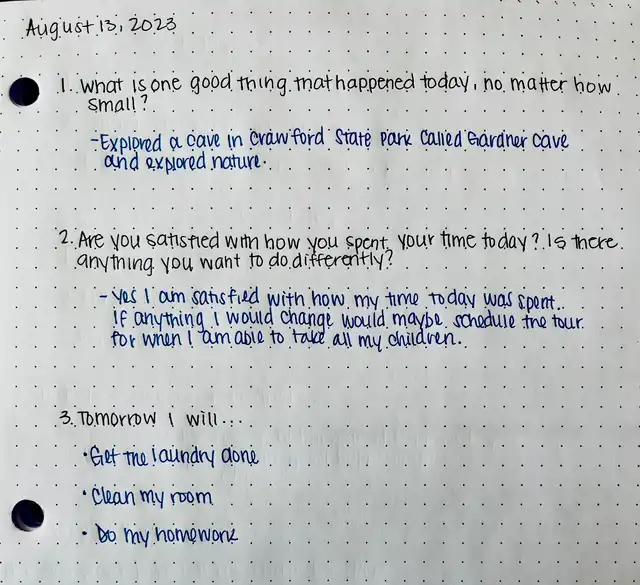 August 13, 2023
1. What is one good thing that happened today, no matter how
small?
- Explored a cave in Crawford State Park called Gardner Cave
and explored nature.
2. Are you satisfied with how you spent your time today? Is there
anything you want to do differently?
- Yes I am satisfied with how my time today was spent.
If anything I would change would maybe schedule the tour
for when I am able to take all my children.
3. Tomorrow I will...
• Get the laundry done
• Clean my room
• Do my homework